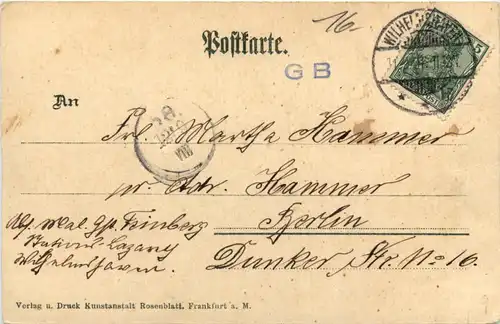 16-
Postkarte.
G B
WILHELMSHAVEN
5
An
Frl. Martha Hammer
pr. Adr. Hammer
Berlin
Dunker Str. No 16.
Abs. Mal. Feinberg
Stations-Lazarett
Wilhelmshaven.
Verlag u. Druck Kunstanstalt Rosenblatt, Frankfurt a. M.